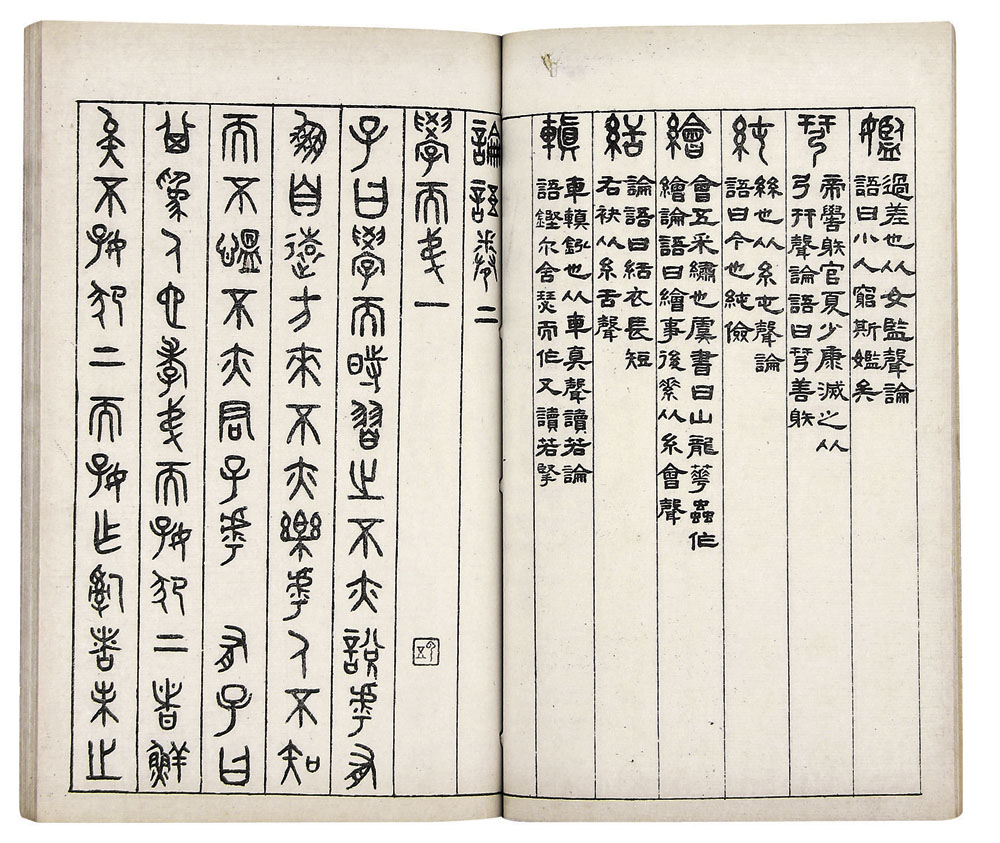 㜮
過差也从女監聲論
語曰小人窮斯㜮矣
𢏗
帝嚳䠶官夏少康滅之从
弓幵聲論語曰𢏗善䠶
純
絲也从糸屯聲論
語曰今也純儉
繪
會五采繡也虞書曰山龍華蟲作
繪論語曰繪事後素从糸會聲
絬
論語曰絬衣長短
右袂从糸舌聲
䡩
車䡩釳也从車真聲讀若論
語鏗尔舍瑟而作又讀若掔
論語卷二
學而弟一
子曰學而時習之不亦說乎有
朋自遠方來不亦樂乎人不知
而不慍不亦君子乎 有子曰
其爲人也孝弟而好犯上者鮮
矣不好犯上而好作亂者未之